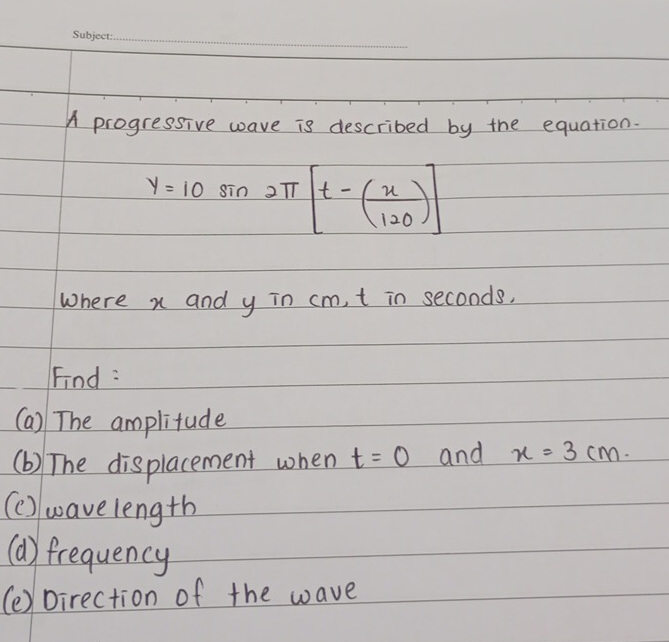 Subject:
A progressive wave is described by the equation.
Y = 10 sin 2π [t - (x/120)]
Where x and y in cm, t in seconds.
Find :
(a) The amplitude
(b) The displacement when t = 0 and x = 3 cm.
(c) wavelength
(d) frequency
(e) Direction of the wave